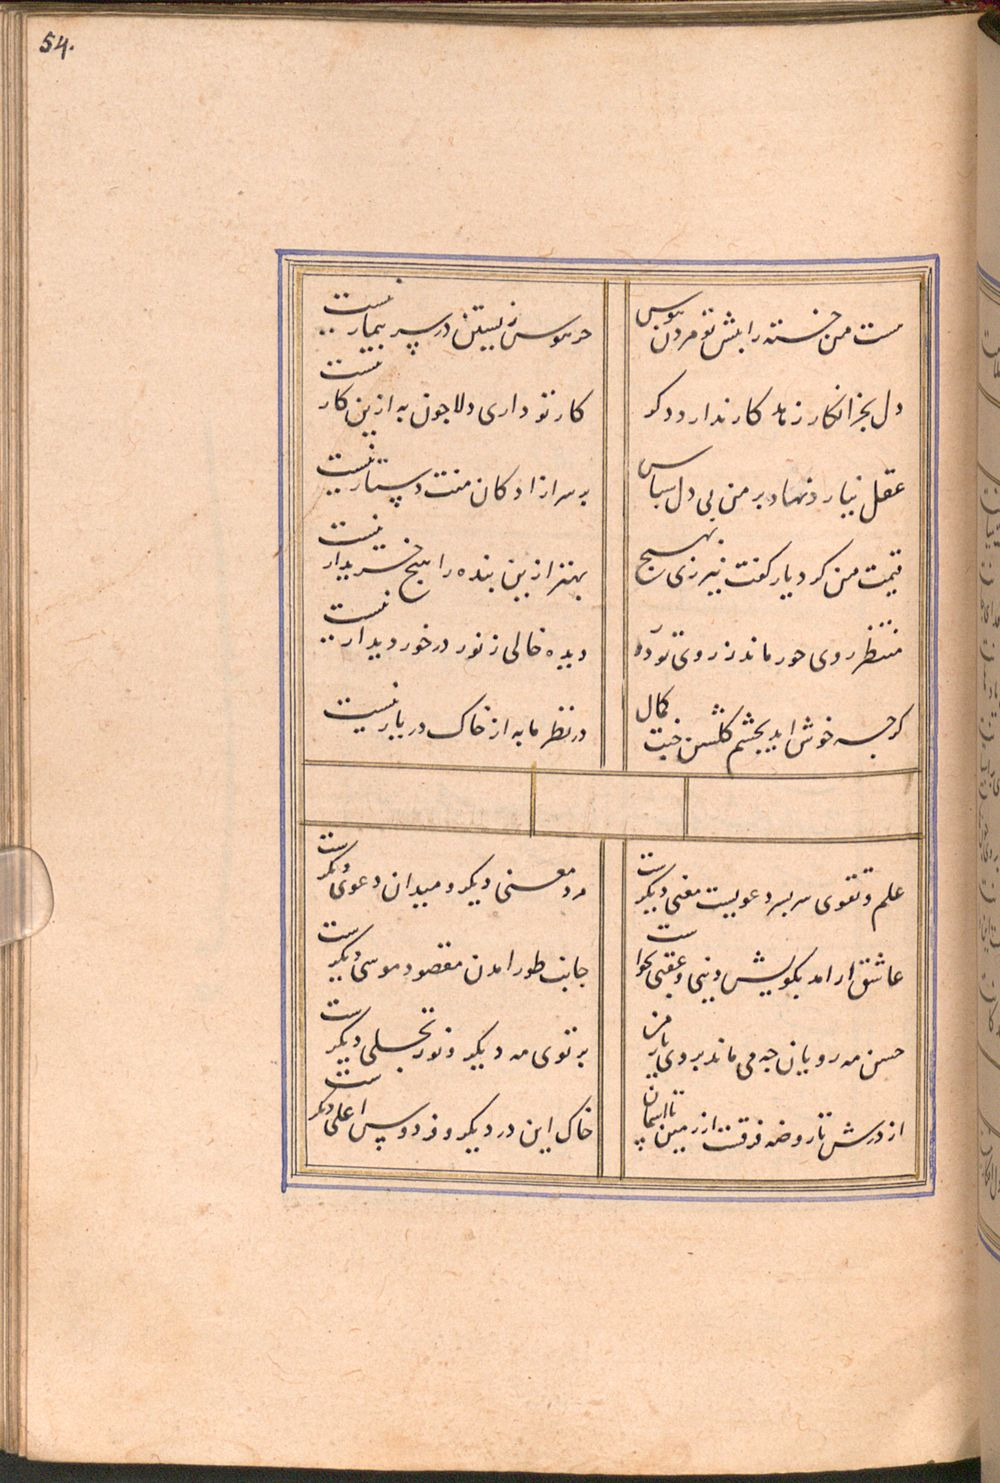 54.
هست من خسته را پیش تو مردن هوس
جز هوس زیستن در سر بیمار نیست
دل بجز انکار زهد کار ندارد دگر
کار تو داری دلا چون به ازین کار نیست
عقل نیارد نهاد بر من بی دل سپاس
بر سر ازادکان منت دستار نیست
قیمت من کرد یار کفت نیرزی بهیچ
بهتر ازین بنده را هیچ خریدار نیست
منتظر روی حور ماند ز روی تو دور
دیده خالی ز نور در خور دیدار نیست
کرچه خوش اید بچشم کلشن جنت کمال
در نظر ما به از خاک در یار نیست
علم و تقوی سربسر دعویست معنی دیکرست
مرد معنی دیکر و میدان دعوی دیکرست
عاشق ار امد بکویش دنیی و عقبی نخواست
جانب طور امدن مقصود موسی دیکرست
حسن مه رویان چه می ماند بروی یار من
پرتوی مه دیکر و نور تجلی دیکرست
از درش تا روضه فرقست از زمین تا اسمان
خاک این در دیکر و فردوس اعلی دیکرست